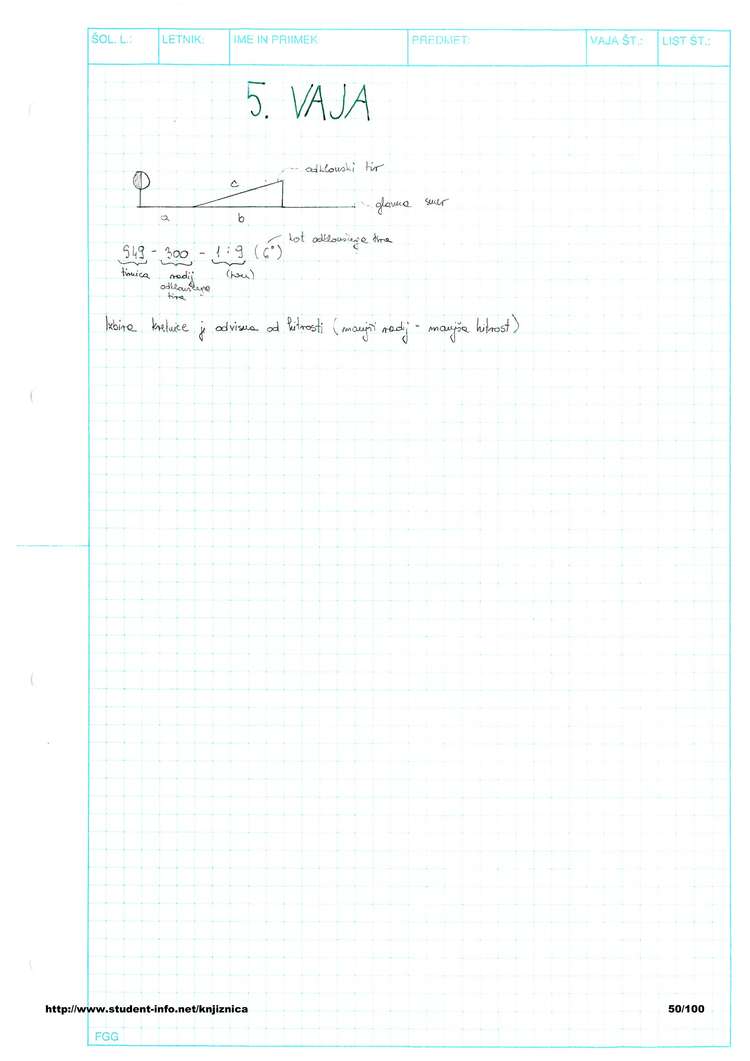 ŠOL. L.: LETNIK: IME IN PRIIMEK: PREDMET: VAJA ŠT.: LIST ŠT.:
5. VAJA
odklonski tir
c
glavna smer
a b
kot odklonskega tira
549 - 300 - 1:9 (6°)
tirnica radij
odklonskega
tira
Izbira kretnice je odvisna od hitrosti (manjši radij - manjša hitrost)
http://www.student-info.net/knjiznica 50/100
FGG